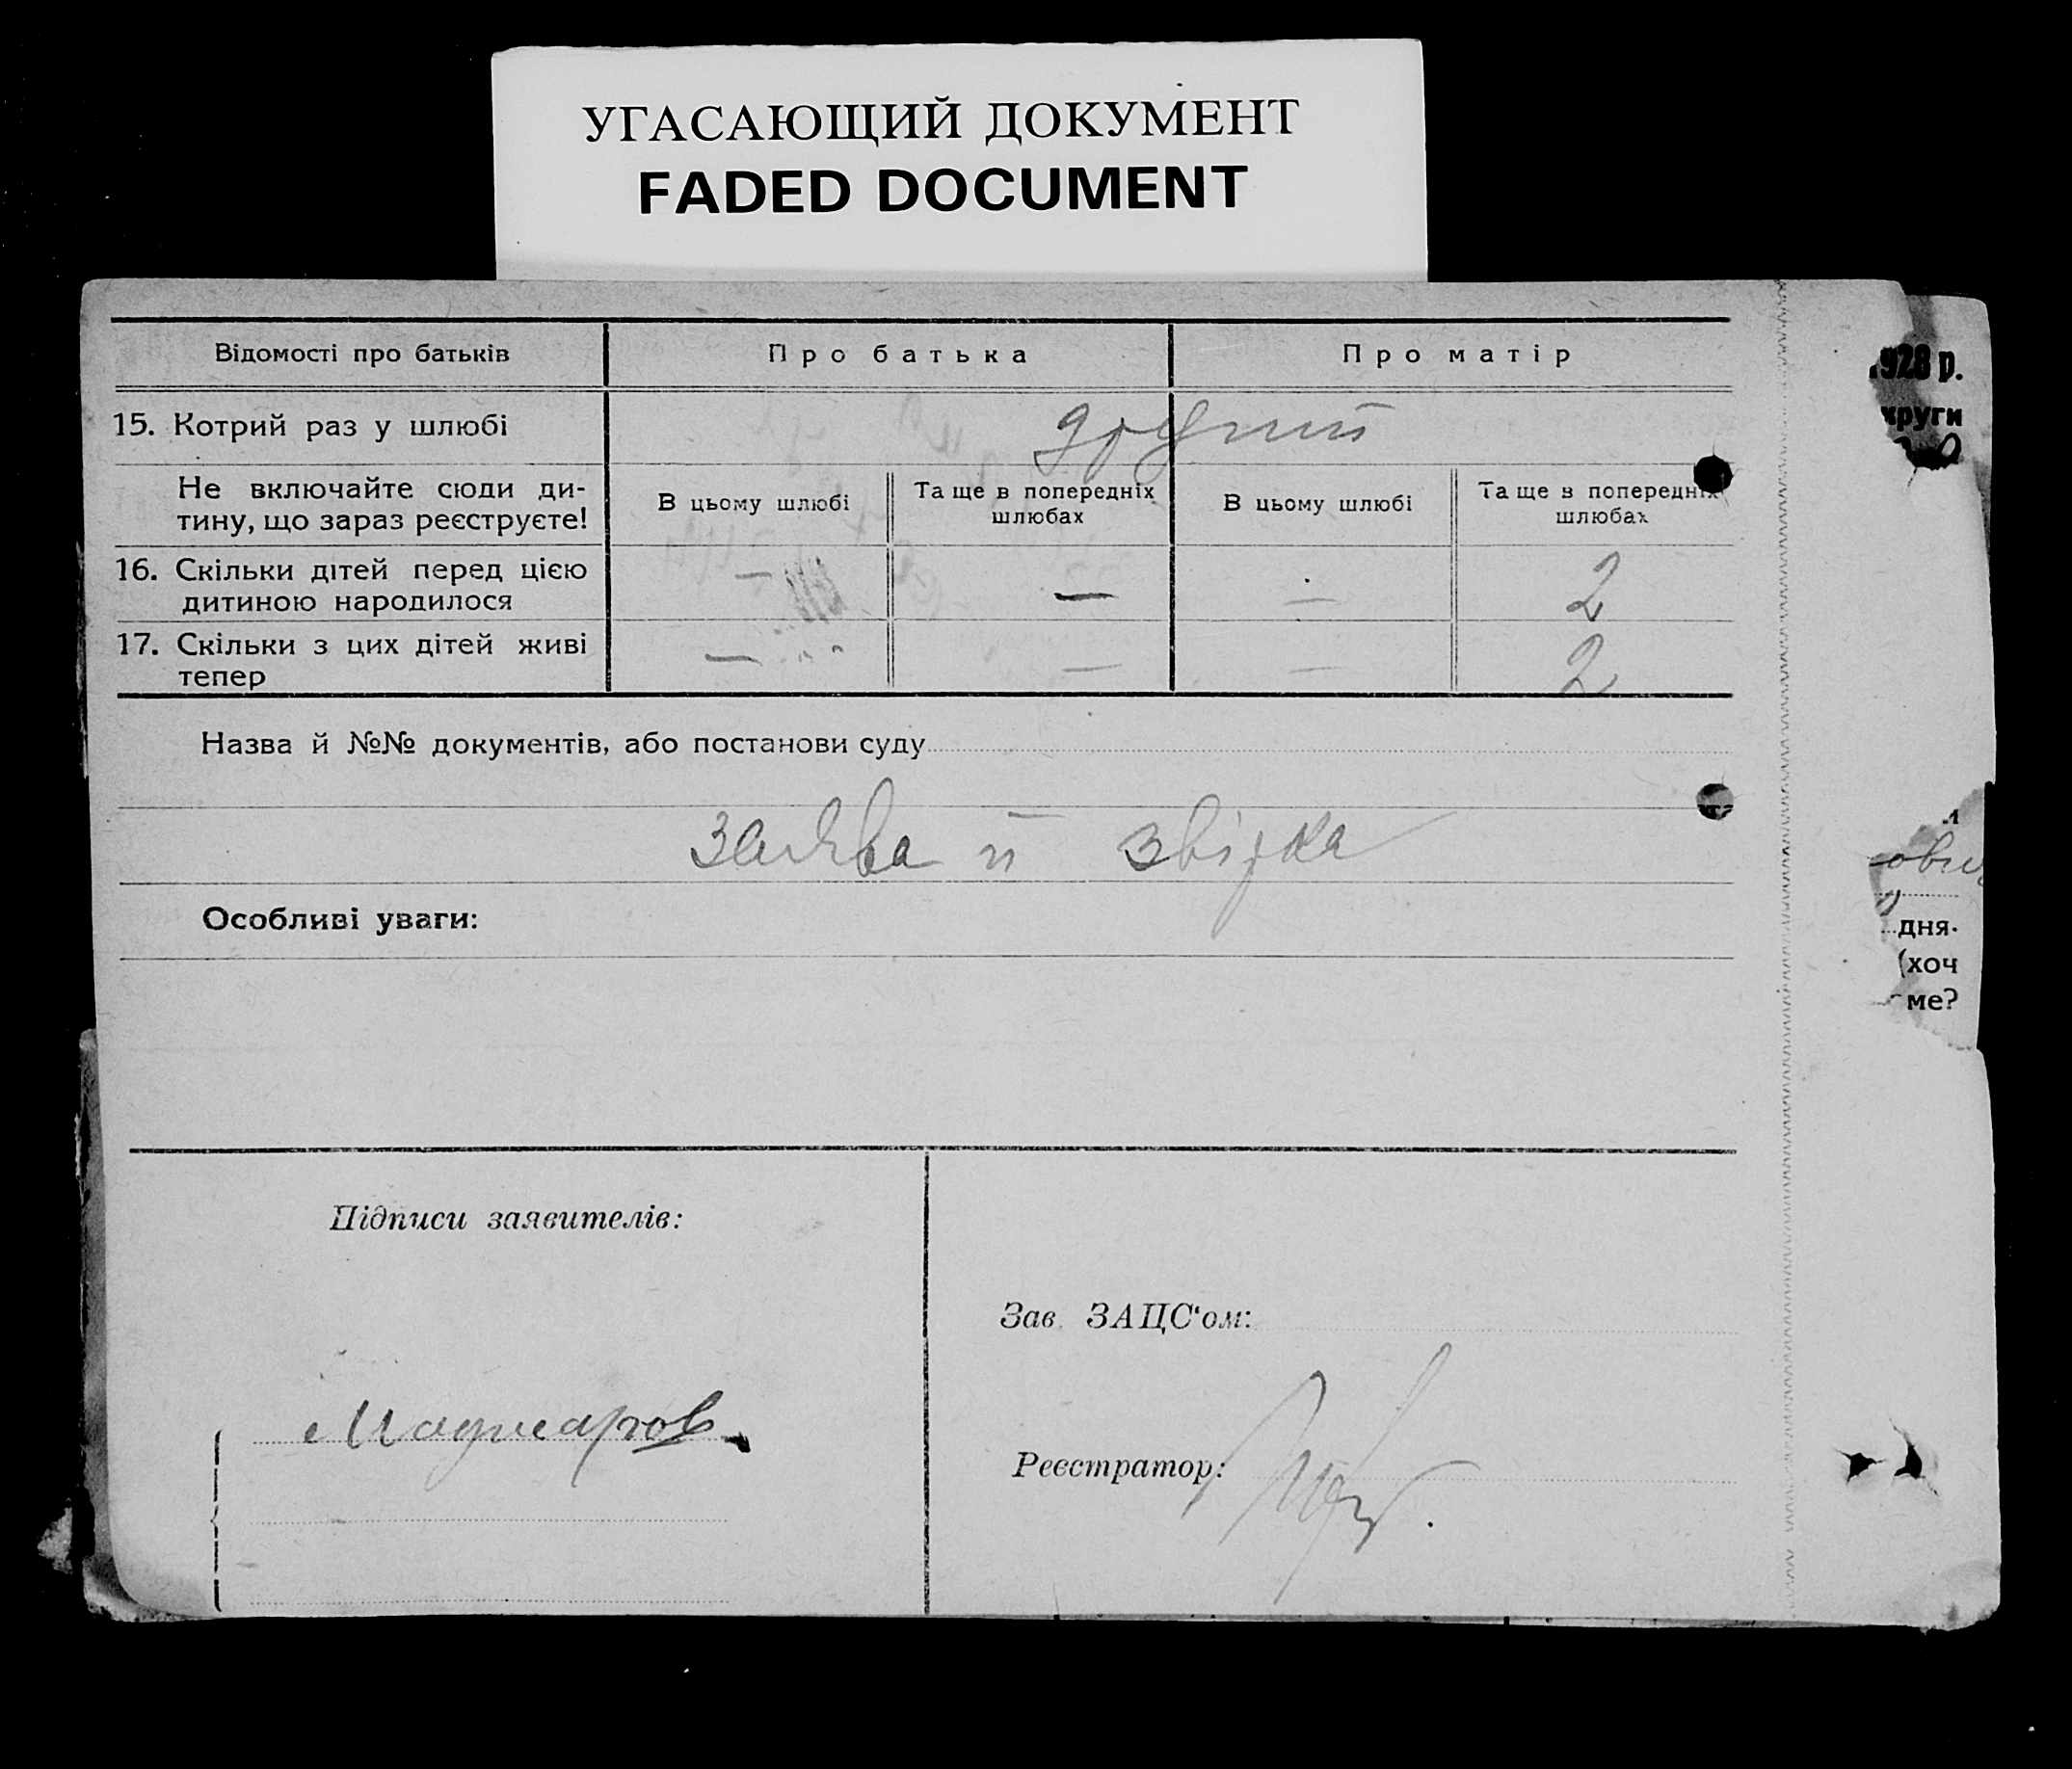 УГАСАЮЩИЙ ДОКУМЕНТ
FADED DOCUMENT
Відомості про батьків
Про батька
Про матір
15. Котрий раз у шлюбі
Не включайте сюди ди-
тину, що зараз реєструєте!
В цьому шлюбі
Та ще в попередніх
шлюбах
В цьому шлюбі
Та ще в попередніх
шлюбах
16. Скільки дітей перед цією
дитиною народилося
— — — 2
17. Скільки з цих дітей живі
тепер
— — — 2
Назва й №№ документів, або постанови суду
заява й звірка
Особливі уваги:
Підписи заявителів:
Маджаров
Зав. ЗАЦС‘ом:
Реєстратор:
928 р.
круги
дня.
(хоч
ме?